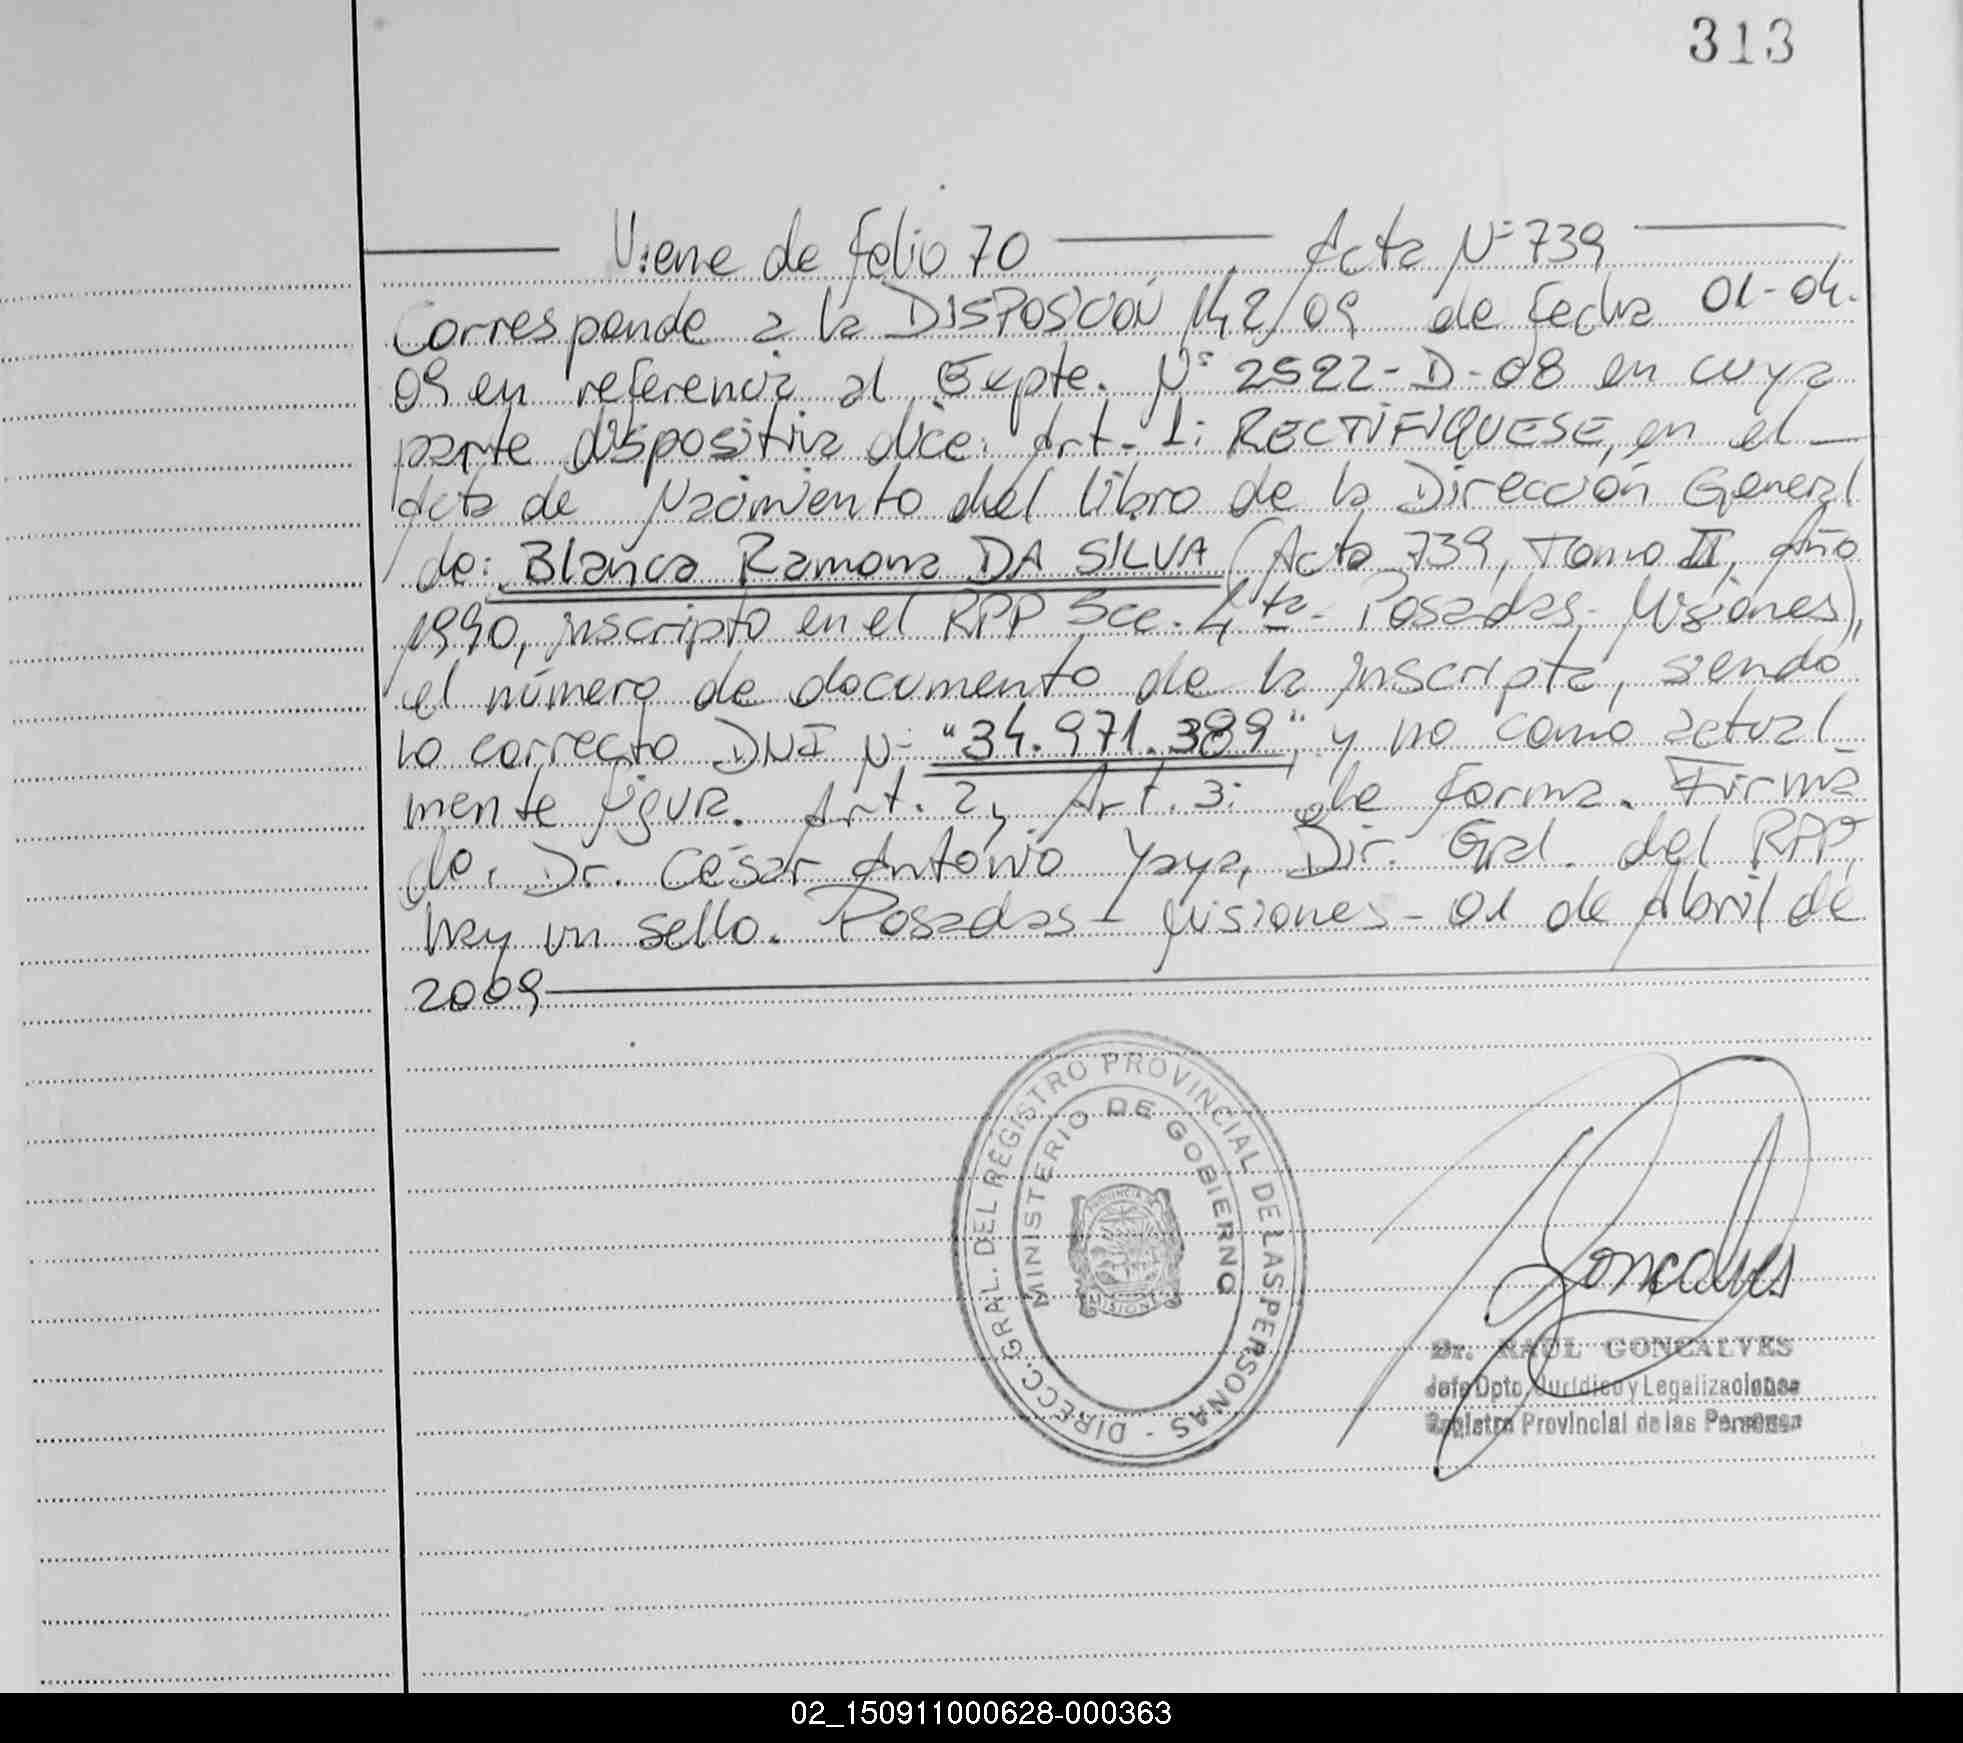 313
Viene de folio 70 Acta Nº 739
Corresponde a la DISPOSICIÓN 142/09 de fecha 01-04-
09 en referencia al Expte. Nº 2522-D-08 en cuya
parte dispositiva dice: Art. 1: RECTIFIQUESE, en el
Acta de Nacimiento del libro de la Dirección General
de: Blanca Ramona DA SILVA (Acta 739, Tomo II, Año
1990, inscripto en el RPP Scc. 4ta - Posadas - Misiones),
el número de documento de la inscripta, siendo
lo correcto DNI Nº "34.971.389", y no como actual_
mente figura. Art. 2, Art. 3: de forma. Firma
do. Dr. César Antonio Yaya, Dir. Gral. del RPP,
hay un sello. Posadas - Misiones - 01 de Abril de
2009
DIRECC. GRAL. DEL REGISTRO PROVINCIAL DE LAS PERSONAS -
MINISTERIO DE GOBIERNO
PROVINCIA DE
MISIONES
Goncalves
Dr. RAUL GONCALVES
Jefe Dpto. Jurídico y Legalizaciones
Registro Provincial de las Personas
02_150911000628-000363